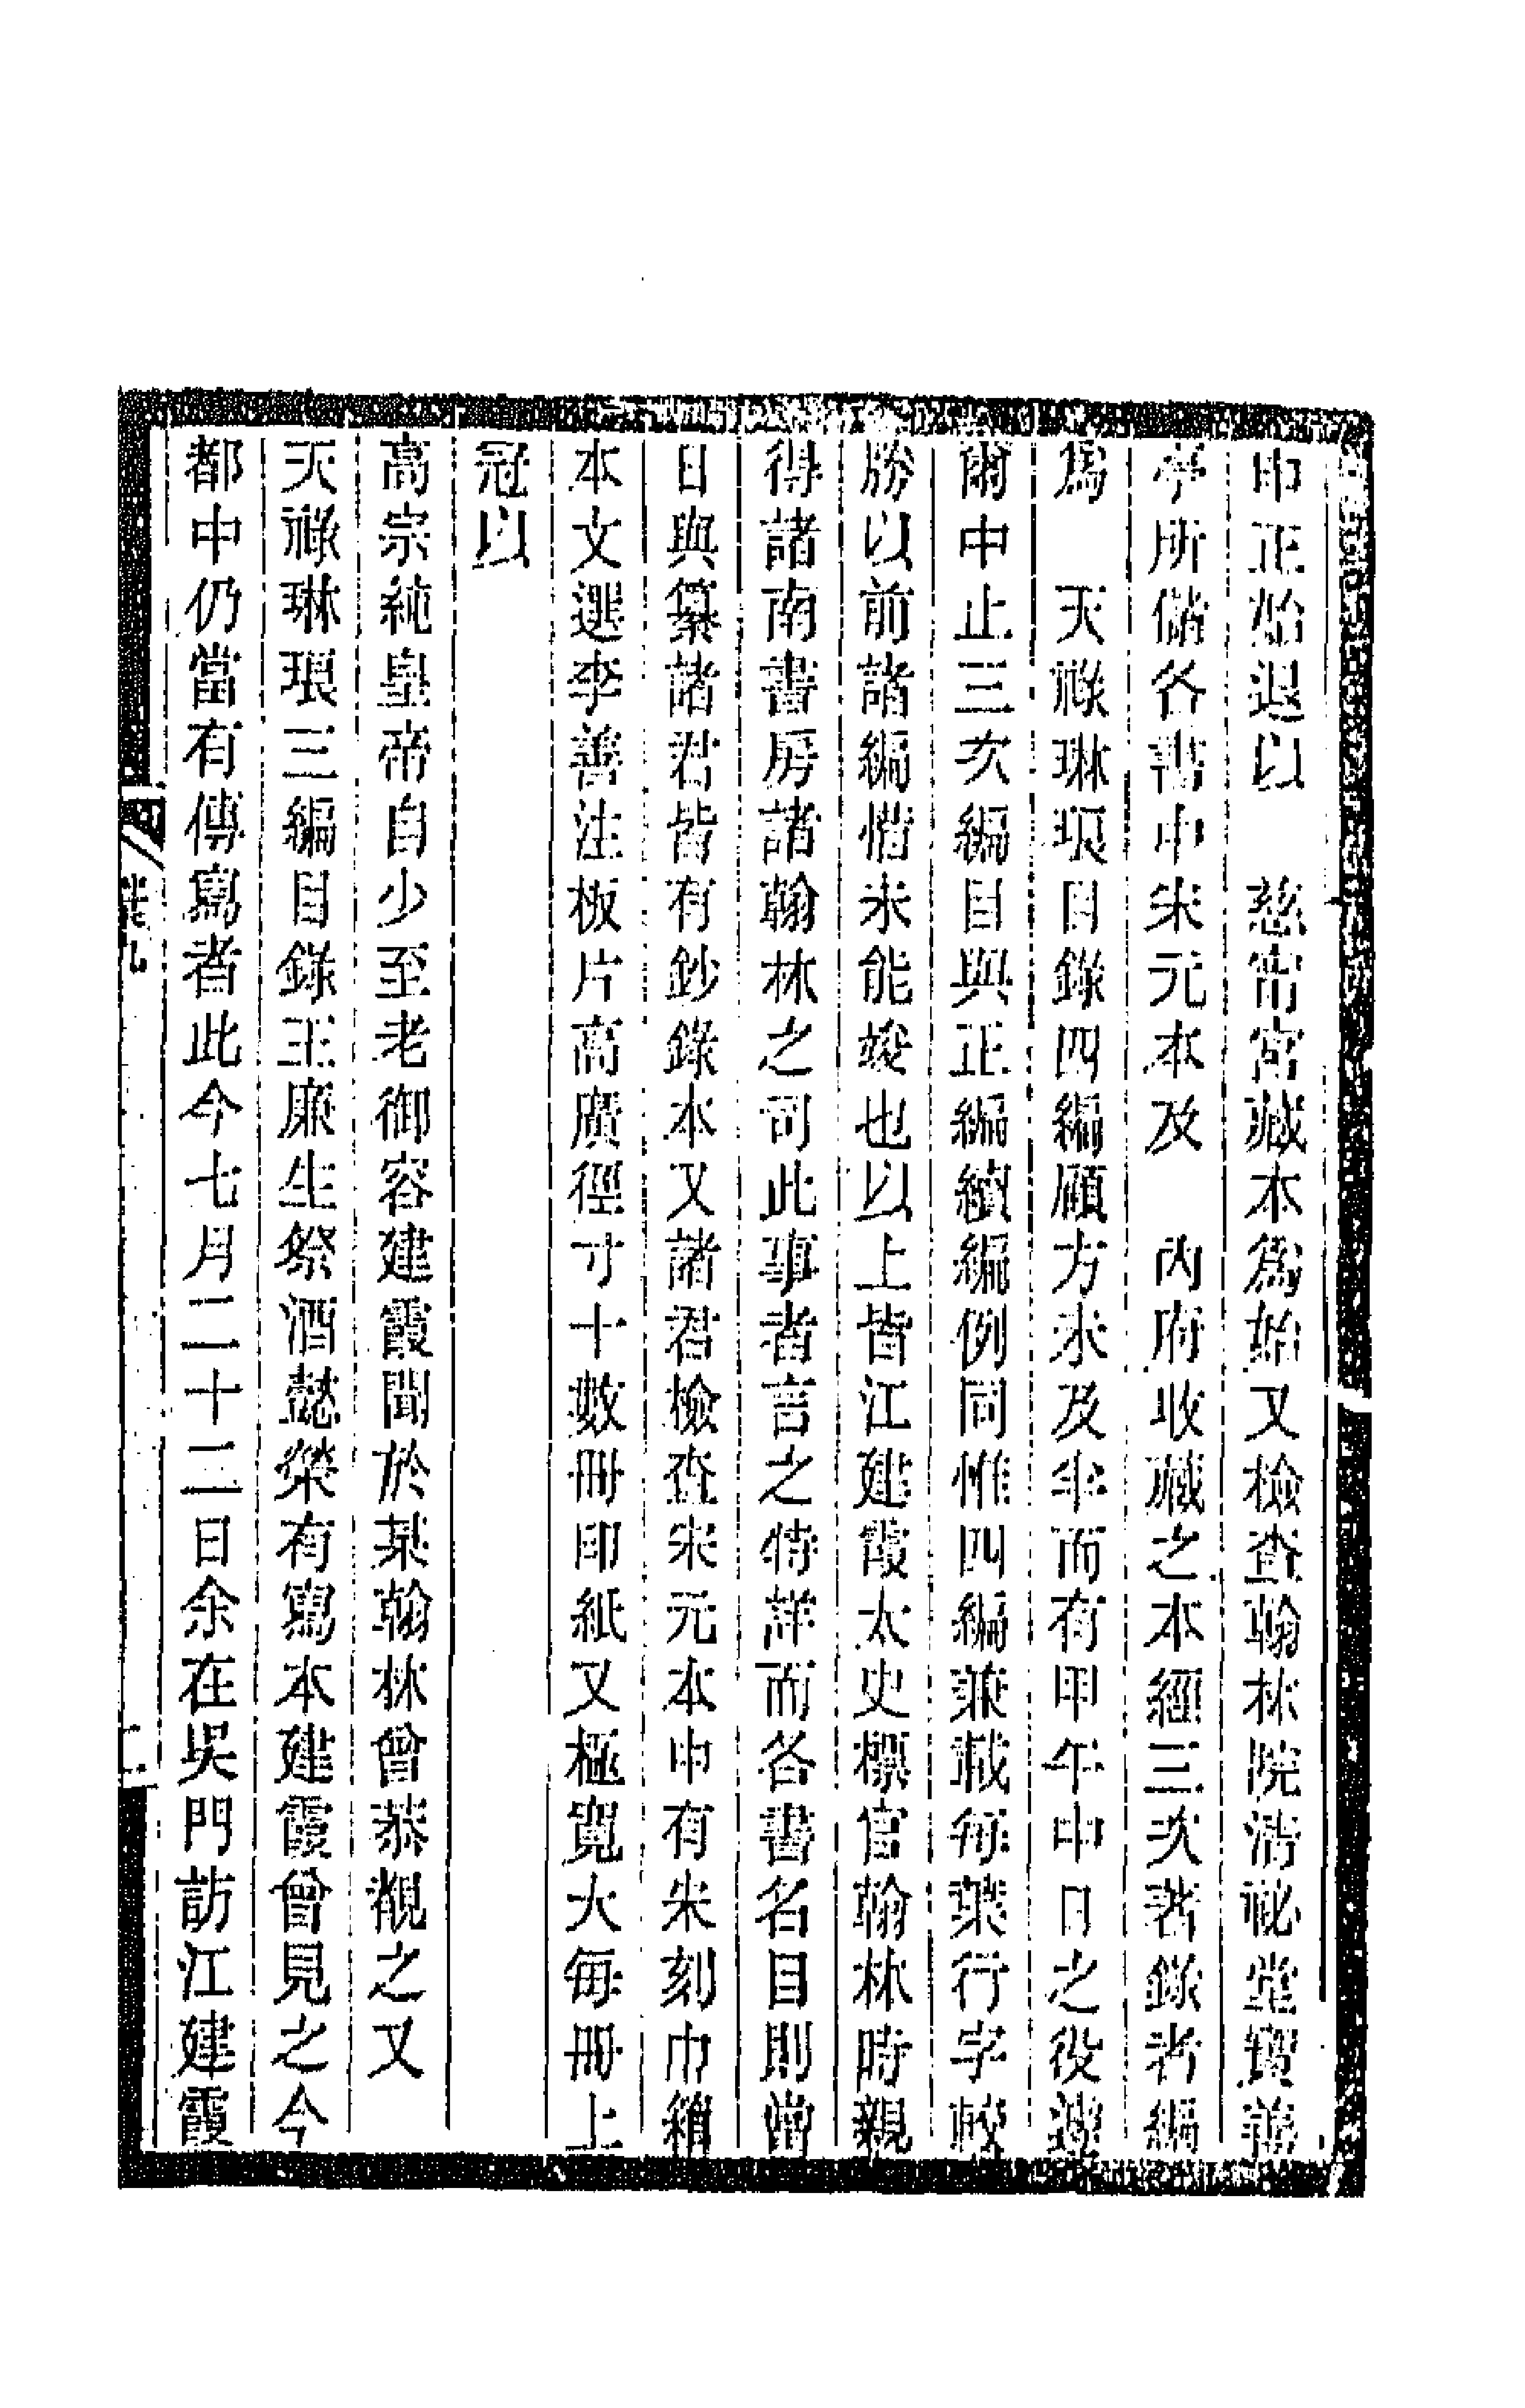 申正始退以　慈甯宮藏本爲始又檢查翰林院淸祕堂寶善
亭所儲各書中宋元本及　內府收藏之本經三次著錄者編
爲　天祿琳琅目錄四編願方未及半而有甲午中日之役遂
爾中止三次編目與正編續編例同惟四編兼載每葉行字較
勝以前諸編惜未能竣也以上皆江建霞太史標官翰林時親
得諸南書房諸翰林之司此事者言之特詳而各書名目則當
日與纂諸君皆有鈔錄本又諸君檢查宋元本中有宋刻巾箱
本文選李善注板片高廣徑寸十數冊印紙又極寬大每冊上
冠以
高宗純皇帝自少至老御容建霞聞於某翰林曾恭觀之又
天祿琳琅三編目錄王廉生祭酒懿榮有寫本建霞曾見之今
都中仍當有傳寫者此今七月二十二日余在吳門訪江建霞
叢九
二